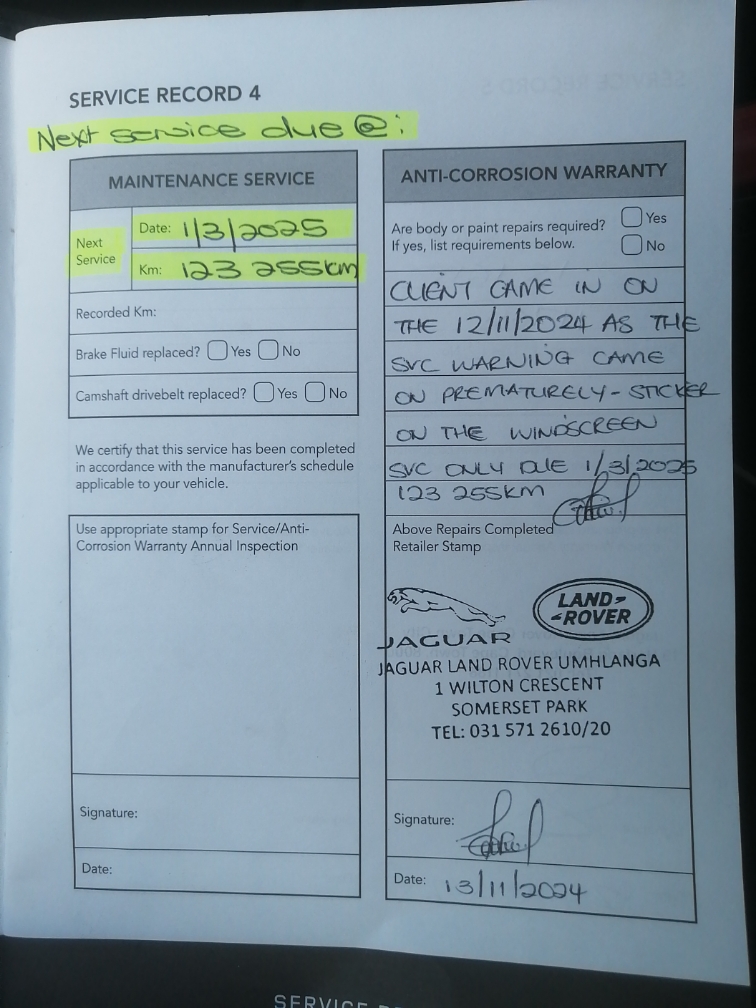 SERVICE RECORD 4
Next service due @:
MAINTENANCE SERVICE
Next
Service
Date: 1/3/2025
Km: 123 255km
Recorded Km:
Brake Fluid replaced? Yes No
Camshaft drivebelt replaced? Yes No
We certify that this service has been completed
in accordance with the manufacturer's schedule
applicable to your vehicle.
Use appropriate stamp for Service/Anti-
Corrosion Warranty Annual Inspection
Signature:
Date:
ANTI-CORROSION WARRANTY
Are body or paint repairs required? Yes
If yes, list requirements below. No
CLIENT CAME IN ON
THE 12/11/2024 AS THE
SVC WARNING CAME
ON PREMATURELY - STICKER
ON THE WINDSCREEN
SVC ONLY DUE 1/3/2025
123 255KM
Above Repairs Completed
Retailer Stamp
JAGUAR
LAND-
-ROVER
JAGUAR LAND ROVER UMHLANGA
1 WILTON CRESCENT
SOMERSET PARK
TEL: 031 571 2610/20
Signature:
Date: 13/11/2024
SERVICE